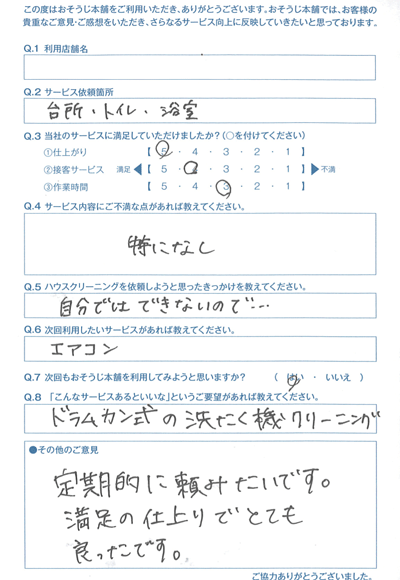 この度はおそうじ本舗をご利用いただき、ありがとうございます。おそうじ本舗では、お客様の
貴重なご意見・ご感想をいただき、さらなるサービス向上に反映していきたいと思っております。
Q.1 利用店舗名
Q.2 サービス依頼箇所
台所・トイレ・浴室
Q.3 当社のサービスに満足していただけましたか？(○を付けてください)
①仕上がり 【 5 ・ 4 ・ 3 ・ 2 ・ 1 】
②接客サービス 満足 ◀【 5 ・ 4 ・ 3 ・ 2 ・ 1 】▶ 不満
③作業時間 【 5 ・ 4 ・ 3 ・ 2 ・ 1 】
Q.4 サービス内容にご不満な点があれば教えてください。
特になし
Q.5 ハウスクリーニングを依頼しようと思ったきっかけを教えてください。
自分ではできないので…
Q.6 次回利用したいサービスがあれば教えてください。
エアコン
Q.7 次回もおそうじ本舗を利用してみようと思いますか？ ( はい ・ いいえ )
Q.8 「こんなサービスあるといいな」というご要望があれば教えてください。
ドラムカン式の洗たく機クリーニング
●その他のご意見
定期的に頼みたいです。
満足の仕上りでとても
良ったです。
ご協力ありがとうございました。